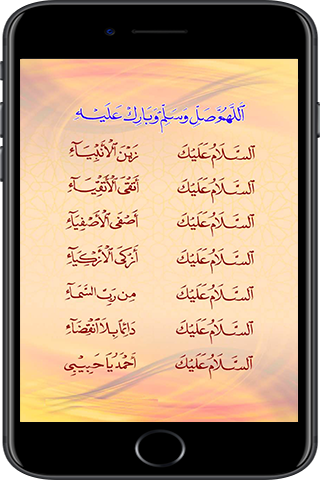 اَللّٰهُمَّ صَلِّ وَسَلِّمْ وَبَارِكْ عَلَيْهِ
اَلسَّلَامُ عَلَيْكَ زَيْنَ الْأَنْبِيَآءِ
اَلسَّلَامُ عَلَيْكَ أَتْقَى الْأَتْقِيَآءِ
اَلسَّلَامُ عَلَيْكَ أَصْفَى الْأَصْفِيَآءِ
اَلسَّلَامُ عَلَيْكَ أَزْكَى الْأَزْكِيَآءِ
اَلسَّلَامُ عَلَيْكَ مِن رَبِّ السَّمَآءِ
اَلسَّلَامُ عَلَيْكَ دَائِمًا بِلَا انْقِضَآءِ
اَلسَّلَامُ عَلَيْكَ أَحْمَدُ يَا حَبِيبِي